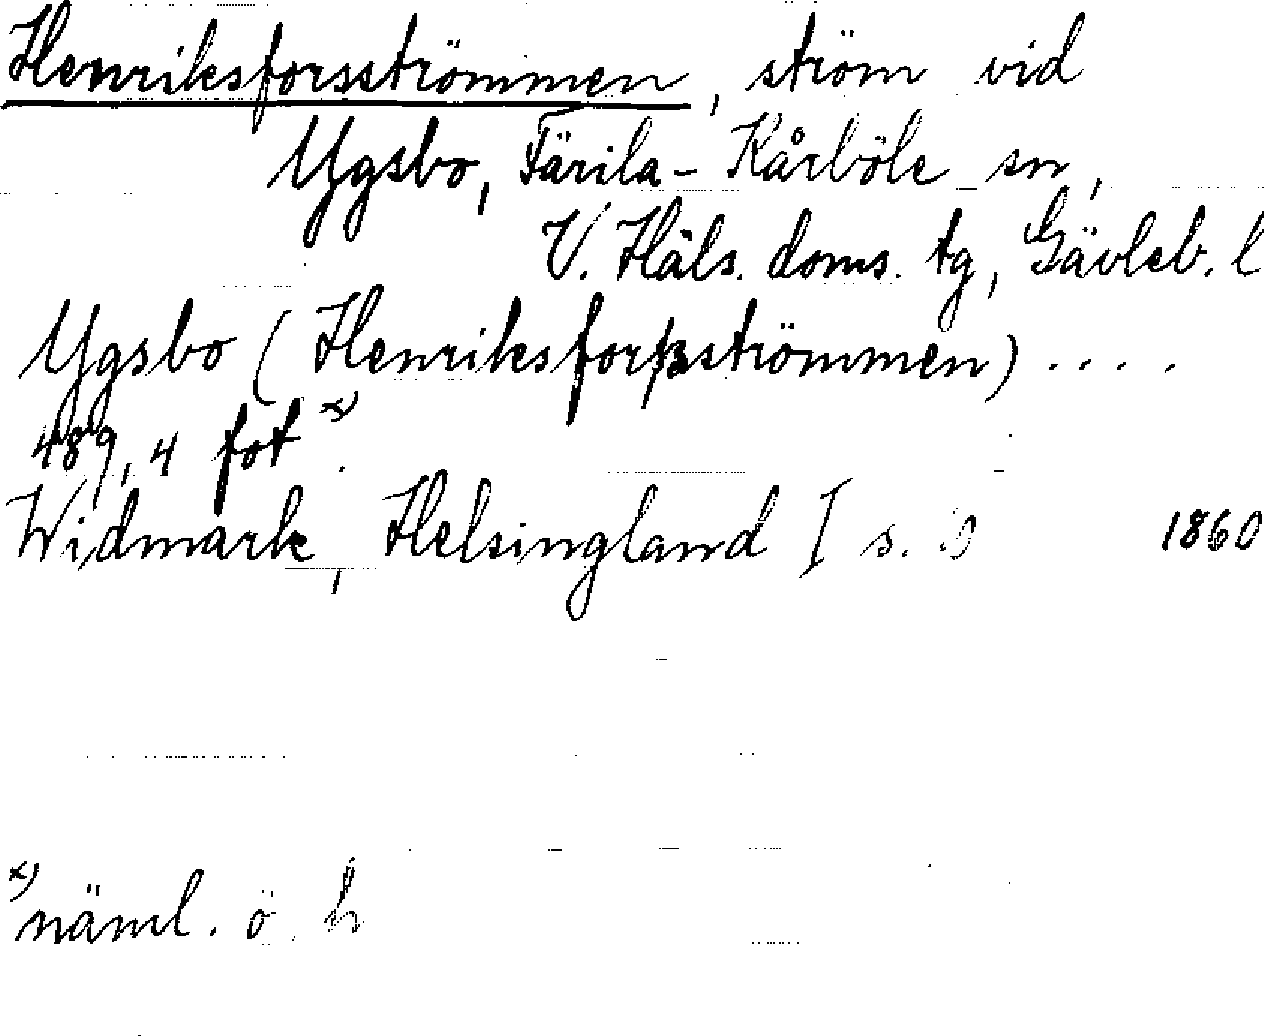 Henriksforsströmmen, ström vid
Ygsbo, Färila-Kårböle sn,
V. Häls. doms. tg, Gävleb. l
Ygsbo (Henriksforsströmmen) ....
489,4 fot x).
Widmark, Helsingland I s. 1860
x) näml. ö. h